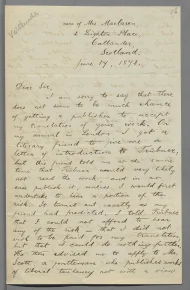 care of Mrs Maclaren
2 Leighton Place,
Callander
Scotland.
June 19, 1892.
Dear Sir,
I am sorry to say that there
does not seem to be much chance
of getting a publisher to accept
my translation of your work. On
my arrival in London I got a
literary friend to give me a
letter of introduction to Trübner,
but this friend told me at the same
time that Trübner would very likely
not read the work, and not
publish it, unless I would first
undertake to bear a portion of the
risk. It turned out exactly as my
friend had predicted. I told Trübner
that I could not afford to bear
any of the risk, that I did not
wish to be paid for my translation
but that I could do nothing further.
He then advised me to apply to Mr
Scott, a gentleman who published works
of liberal tendency not with a view